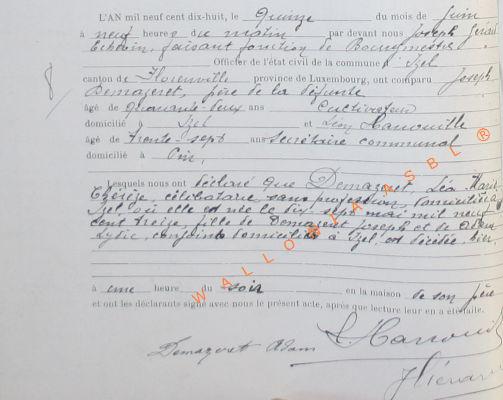 L'AN mil neuf cent dix-huit, le Quinze du mois de Juin
à neuf heures du matin par devant nous Joseph Gérard
Echevin, faisant fonction de Bourgmestre
Officier de l'état civil de la commune d'Izel
8
canton de Florenville province de Luxembourg, ont comparu Joseph
Demazeret, père de la défunte
âgé de Quarante-deux ans Cultivateur
domicilié à Izel et Léon Hanouille
âgé de trente-sept ans Secrétaire communal
domicilié à Pin,
Lesquels nous ont déclaré que Demazeret, Léa Marie
Thérèse, célibataire sans profession, domiciliée à
Izel, où elle est née le dix-sept mai mil neuf
cent treize, fille de Demazeret Joseph et de Adam
Lydie, conjoints domiciliés à Izel, est décédée hier,
à une heure du soir en la maison de son père
et ont les déclarants signé avec nous le présent acte, après que lecture leur en a été faite.
Demazeret Adam
WALLONIA ASBL ®